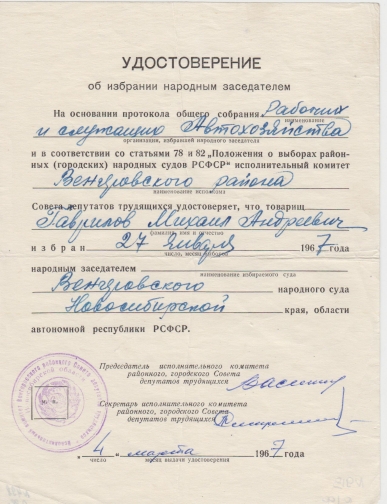 УДОСТОВЕРЕНИЕ
об избрании народным заседателем
На основании протокола общего собрания Рабочих
наименование
и служащих Автохозяйства
организации, избравшей народного заседателя
и в соответствии со статьями 78 и 82 „Положения о выборах район-
ных (городских) народных судов РСФСР" исполнительный комитет
Венгеровского района
наименование исполкома
Совета депутатов трудящихся удостоверяет, что товарищ
Гаврилов Михаил Андреевич
фамилия, имя и отчество
избран 27 Января 1967 года
число, месяц выборов
народным заседателем
наименование избираемого суда
Венгеровского народного суда
Новосибирской края, области
автономной республики РСФСР.
Председатель исполнительного комитета
районного, городского Совета
депутатов трудящихся
Секретарь исполнительного комитета
районного, городского Совета
депутатов трудящихся
„ 4 „ марта 1967 года
число месяц выдачи удостоверения